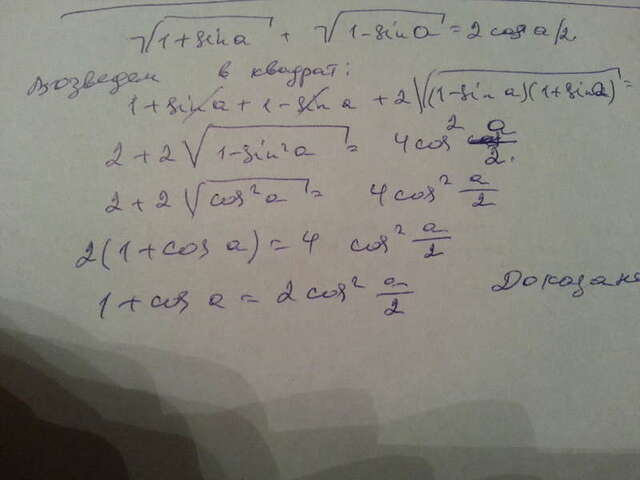 √(1+sin a) + √(1-sin a) = 2 cos a/2
Возведем в квадрат:
1+sin a + 1-sin a + 2√((1-sin a)(1+sin a)) =
2+2√(1-sin²a) = 4cos² a/2.
2+2√(cos²a) = 4cos² a/2
2(1+cos a) = 4 cos² a/2
1+cos a = 2cos² a/2 Доказано